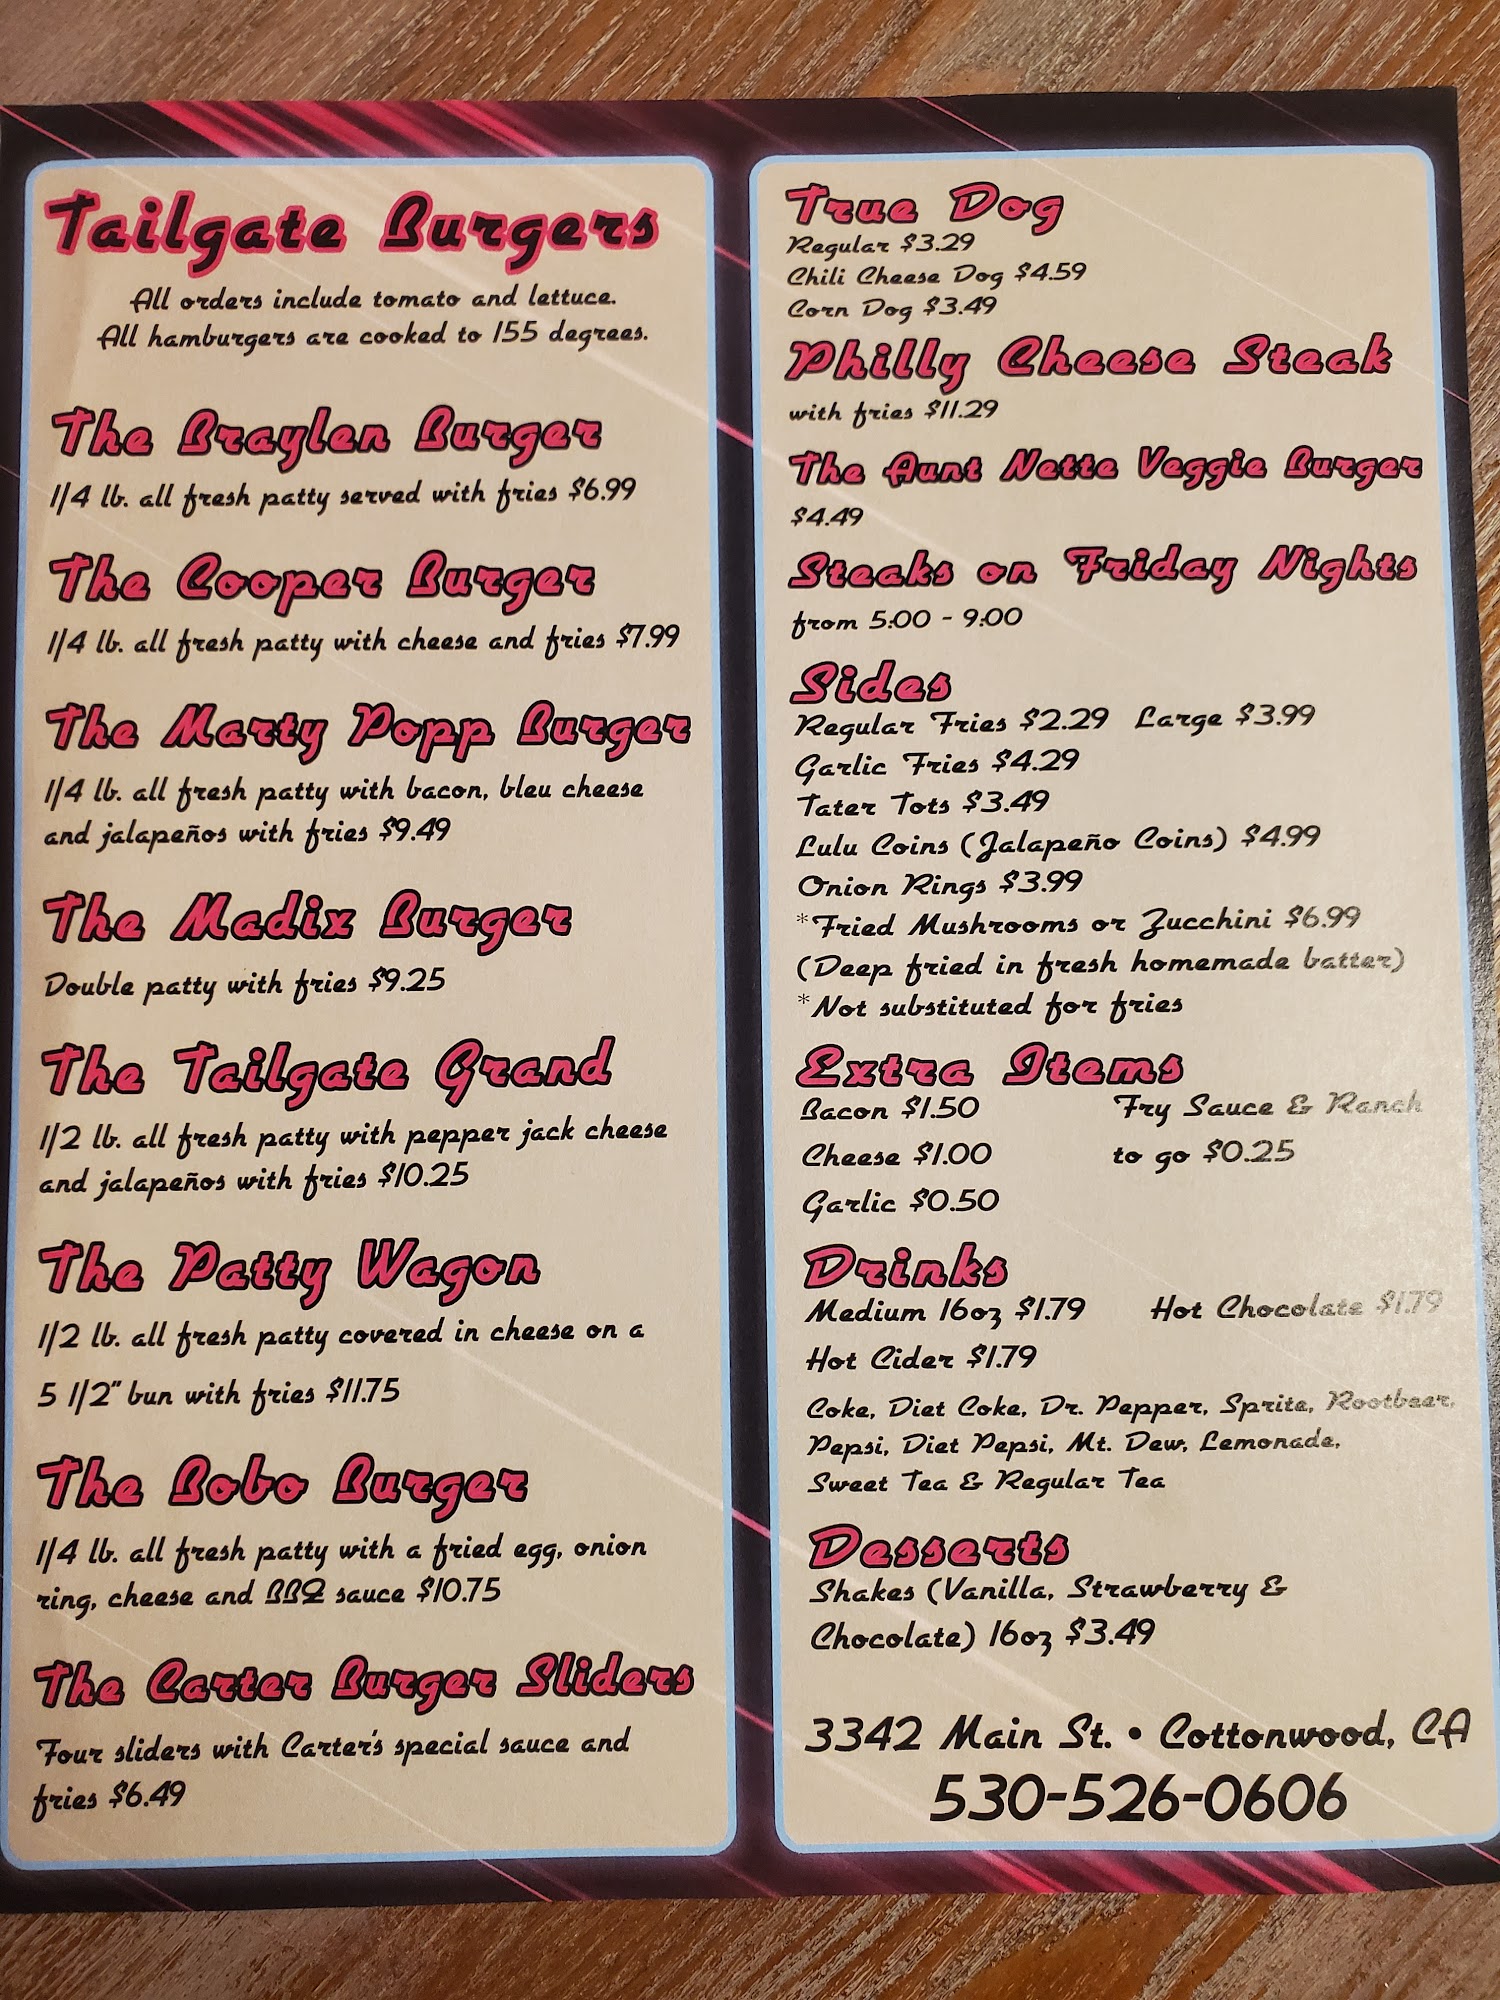 Tailgate Burgers
All orders include tomato and lettuce.
All hamburgers are cooked to 155 degrees.
The Braylen Burger
1/4 lb. all fresh patty served with fries $6.99
The Cooper Burger
1/4 lb. all fresh patty with cheese and fries $7.99
The Marty Popp Burger
1/4 lb. all fresh patty with bacon, bleu cheese
and jalapeños with fries $9.49
The Madix Burger
Double patty with fries $9.25
The Tailgate Grand
1/2 lb. all fresh patty with pepper jack cheese
and jalapeños with fries $10.25
The Patty Wagon
1/2 lb. all fresh patty covered in cheese on a
5 1/2" bun with fries $11.75
The Bobo Burger
1/4 lb. all fresh patty with a fried egg, onion
ring, cheese and BBQ sauce $10.75
The Carter Burger Sliders
Four sliders with Carter's special sauce and
fries $6.49
True Dog
Regular $3.29
Chili Cheese Dog $4.59
Corn Dog $3.49
Philly Cheese Steak
with fries $11.29
The Aunt Nette Veggie Burger
$4.49
Steaks on Friday Nights
from 5:00 - 9:00
Sides
Regular Fries $2.29 Large $3.99
Garlic Fries $4.29
Tater Tots $3.49
Lulu Coins (Jalapeño Coins) $4.99
Onion Rings $3.99
*Fried Mushrooms or Zucchini $6.99
(Deep fried in fresh homemade batter)
*Not substituted for fries
Extra Items
Bacon $1.50 Fry Sauce & Ranch
Cheese $1.00 to go $0.25
Garlic $0.50
Drinks
Medium 16oz $1.79 Hot Chocolate $1.79
Hot Cider $1.79
Coke, Diet Coke, Dr. Pepper, Sprite, Rootbeer,
Pepsi, Diet Pepsi, Mt. Dew, Lemonade,
Sweet Tea & Regular Tea
Desserts
Shakes (Vanilla, Strawberry &
Chocolate) 16oz $3.49
3342 Main St. • Cottonwood, CA
530-526-0606